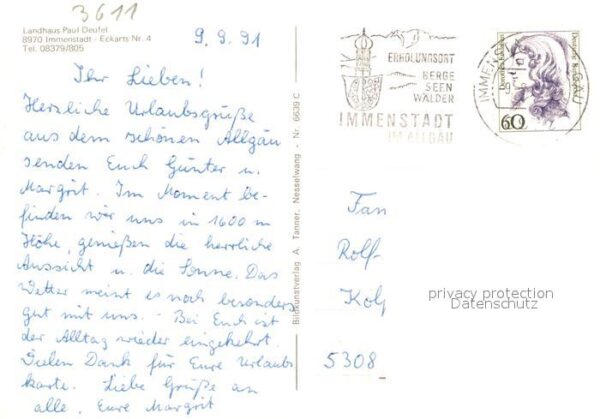 3611
Landhaus Paul Deufel
8970 Immenstadt - Eckarts Nr. 4
Tel. 08379/805
9.9.91
Ihr Lieben!
Herzliche Urlaubsgrüße
aus dem schönen Allgäu
senden Euch Günter u.
Margrit. Im Moment be-
finden wir uns in 1600 m
Höhe, genießen die herrliche
Aussicht u. die Sonne. Das
Wetter meint es noch besonders
gut mit uns. - Bei Euch ist
der Alltag wieder eingekehrt.
Vielen Dank für Eure Urlaubs
karte. Liebe Grüße an
alle. Eure Margrit
Bildkunstverlag A. Tanner, Nesselwang - Nr. 6639 C
ERHOLUNGSORT
BERGE
SEEN
WÄLDER
IMMENSTADT
IM ALLGÄU
60
Fan
Rolf-
privacy protection
Datenschutz
5308